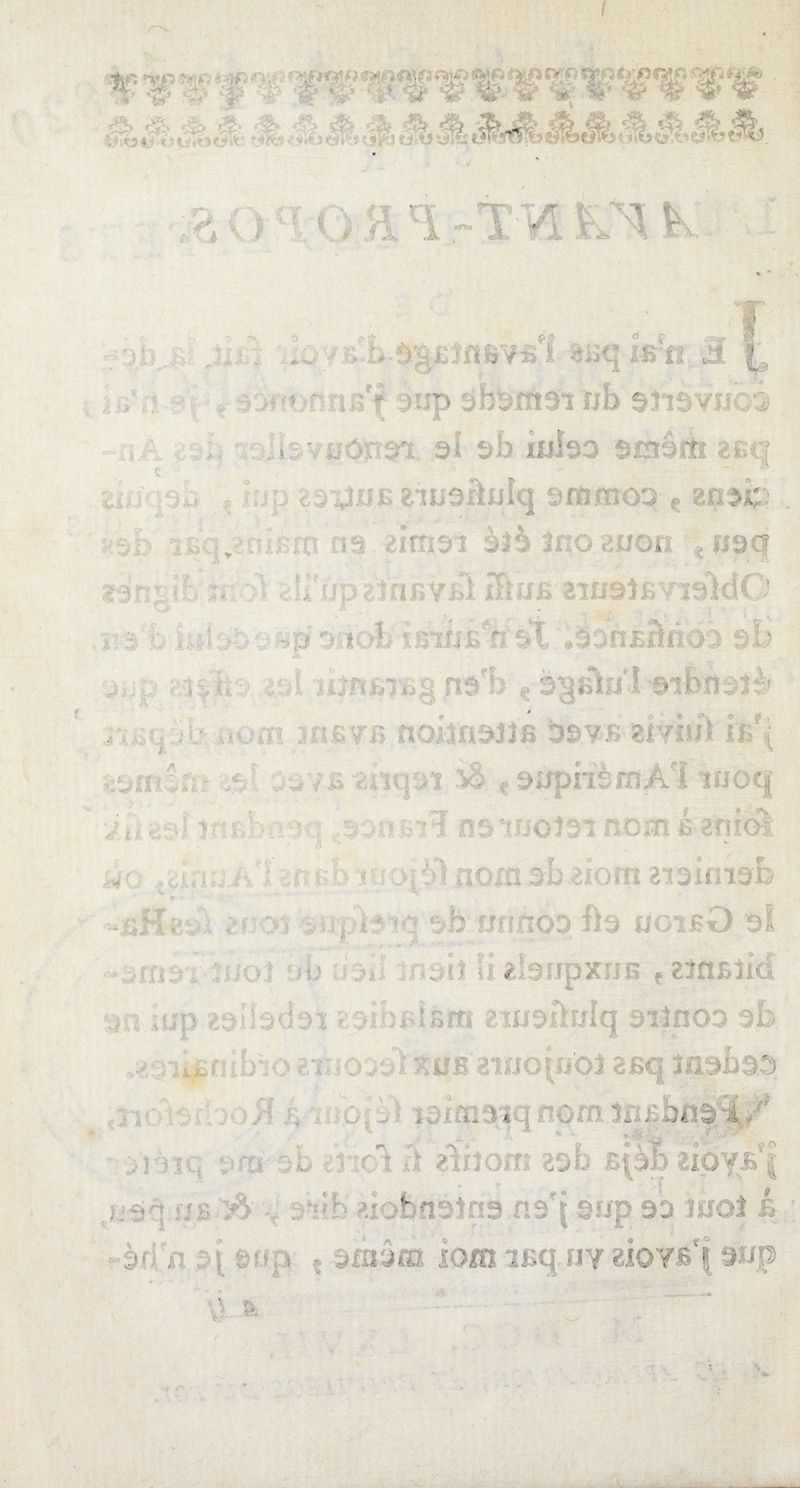 AVANT-PROPOS.
JE n'ai pas l'avantage d'avoir fait la dé-
couverte du remede que j'annonce, je n'ai
pas même celui de le renouveller des An-
ciens, comme plusieurs autres qui, depuis
peu, nous ont été remis en mains par des
Observateurs aussi savants qu'ils sont dignes
de confiance. Je n'aurai donc que celui d'en
étendre l'usage, d'en garantir les effets que
j'ai suivis avec attention avant mon départ
pour l'Amérique, & repris avec les mêmes
soins à mon retour en France, pendant les six
derniers mois de mon séjour dans l'Aunis, où
le Garou est connu de presque tous les Ha-
bitants, auxquels il tient lieu de tout reme-
de contre plusieurs maladies rebelles qui ne
cedent pas toujours aux secours ordinaires.
Pendant mon premier séjour à Rochefort,
j'avois déja des motifs si forts de me prêter
à tout ce que j'en entendois dire, & au peu
que j'avois vu par moi même, que je n'hé-
a ij